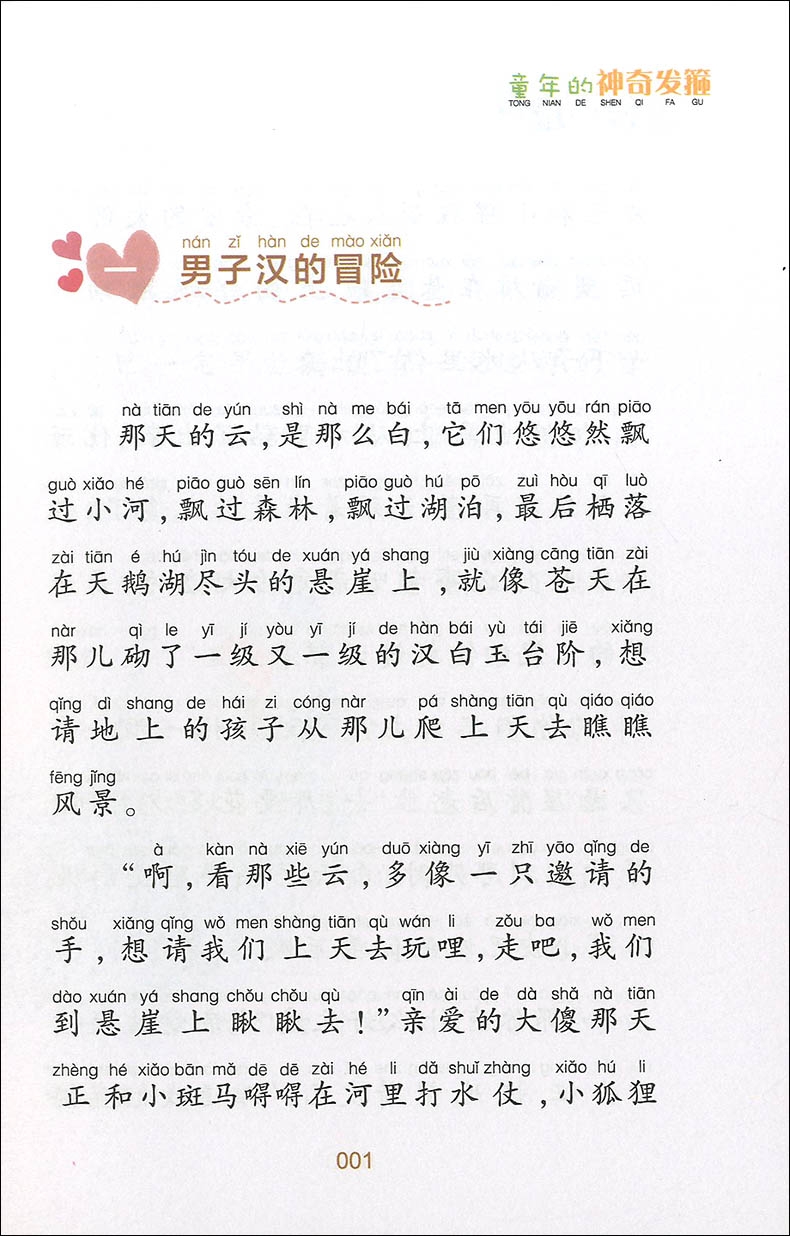 童年的神奇发箍
TONG NIAN DE SHEN QI FA GU
nán zǐ hàn de mào xiǎn
一 男子汉的冒险
nà tiān de yún shì nà me bái tā men yōu yōu rán piāo
那天的云，是那么白，它们悠悠然飘
guò xiǎo hé piāo guò sēn lín piāo guò hú pō zuì hòu qī luò
过小河，飘过森林，飘过湖泊，最后栖落
zài tiān é hú jìn tóu de xuán yá shang jiù xiàng cāng tiān zài
在天鹅湖尽头的悬崖上，就像苍天在
nàr qì le yī jí yòu yī jí de hàn bái yù tái jiē xiǎng
那儿砌了一级又一级的汉白玉台阶，想
qǐng dì shang de hái zi cóng nàr pá shàng tiān qù qiáo qiáo
请地上的孩子从那儿爬上天去瞧瞧
fēng jǐng
风景。
à kàn nà xiē yún duō xiàng yī zhī yāo qǐng de
“啊，看那些云，多像一只邀请的
shǒu xiǎng qǐng wǒ men shàng tiān qù wán li zǒu ba wǒ men
手，想请我们上天去玩哩，走吧，我们
dào xuán yá shang chǒu chǒu qù qīn ài de dà shǎ nà tiān
到悬崖上瞅瞅去！”亲爱的大傻那天
zhèng hé xiǎo bān mǎ dē dē zài hé li dǎ shuǐ zhàng xiǎo hú li
正和小斑马嘚嘚在河里打水仗，小狐狸
001